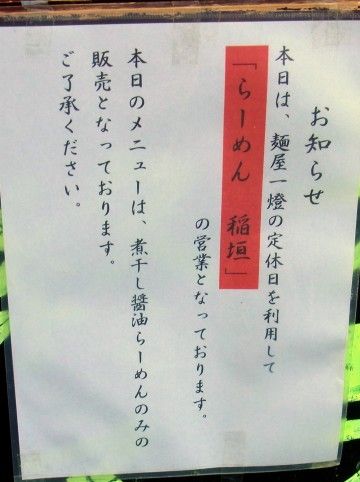 お知らせ
本日は、麺屋一燈の定休日を利用して
「らーめん 稲垣」
の営業となっております。
本日のメニューは、煮干し醤油らーめんのみの
販売となっております。
ご了承ください。